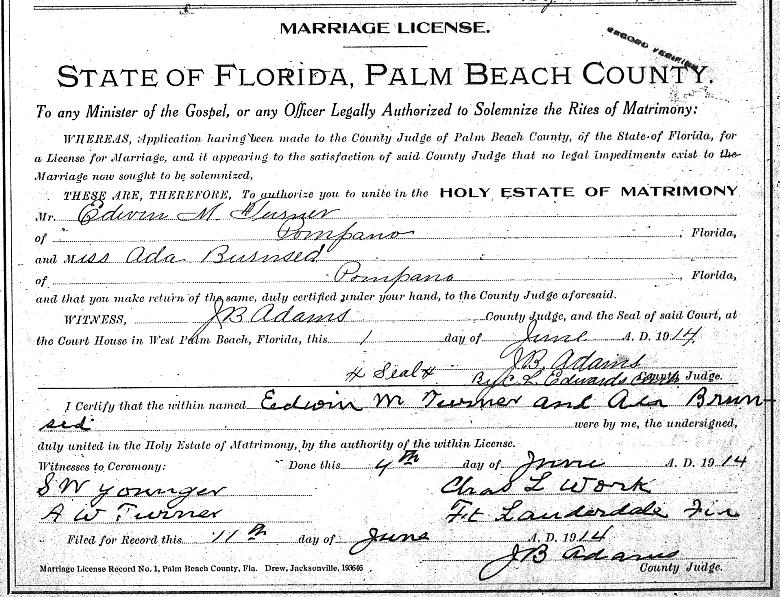 MARRIAGE LICENSE.
RECORD VERIFIED
STATE OF FLORIDA, PALM BEACH COUNTY.
To any Minister of the Gospel, or any Officer Legally Authorized to Solemnize the Rites of Matrimony:
WHEREAS, Application having been made to the County Judge of Palm Beach County, of the State of Florida, for
a License for Marriage, and it appearing to the satisfaction of said County Judge that no legal impediments exist to the
Marriage now sought to be solemnized,
THESE ARE, THEREFORE, To authorize you to unite in the HOLY ESTATE OF MATRIMONY
Mr. Edwin M Turner
of Pompano, Florida,
and Miss Ada Burnsed
of Pompano, Florida,
and that you make return of the same, duly certified under your hand, to the County Judge aforesaid.
WITNESS, J B Adams County Judge, and the Seal of said Court, at
the Court House in West Palm Beach, Florida, this 1 day of June A. D. 1914
J.B. Adams
Seal By C. L. Edwards County Judge.
I Certify that the within named Edwin M Turner and Ada Brun-
sed were by me, the undersigned,
duly united in the Holy Estate of Matrimony, by the authority of the within License.
Witnesses to Ceremony: Done this 4th day of June A. D. 1914
S W Younger Chas L Work
A W Turner Ft Lauderdale Fla
Filed for Record this 11th day of June A. D. 1914
J B Adams
County Judge.
Marriage License Record No. 1, Palm Beach County, Fla. Drew, Jacksonville, 193646